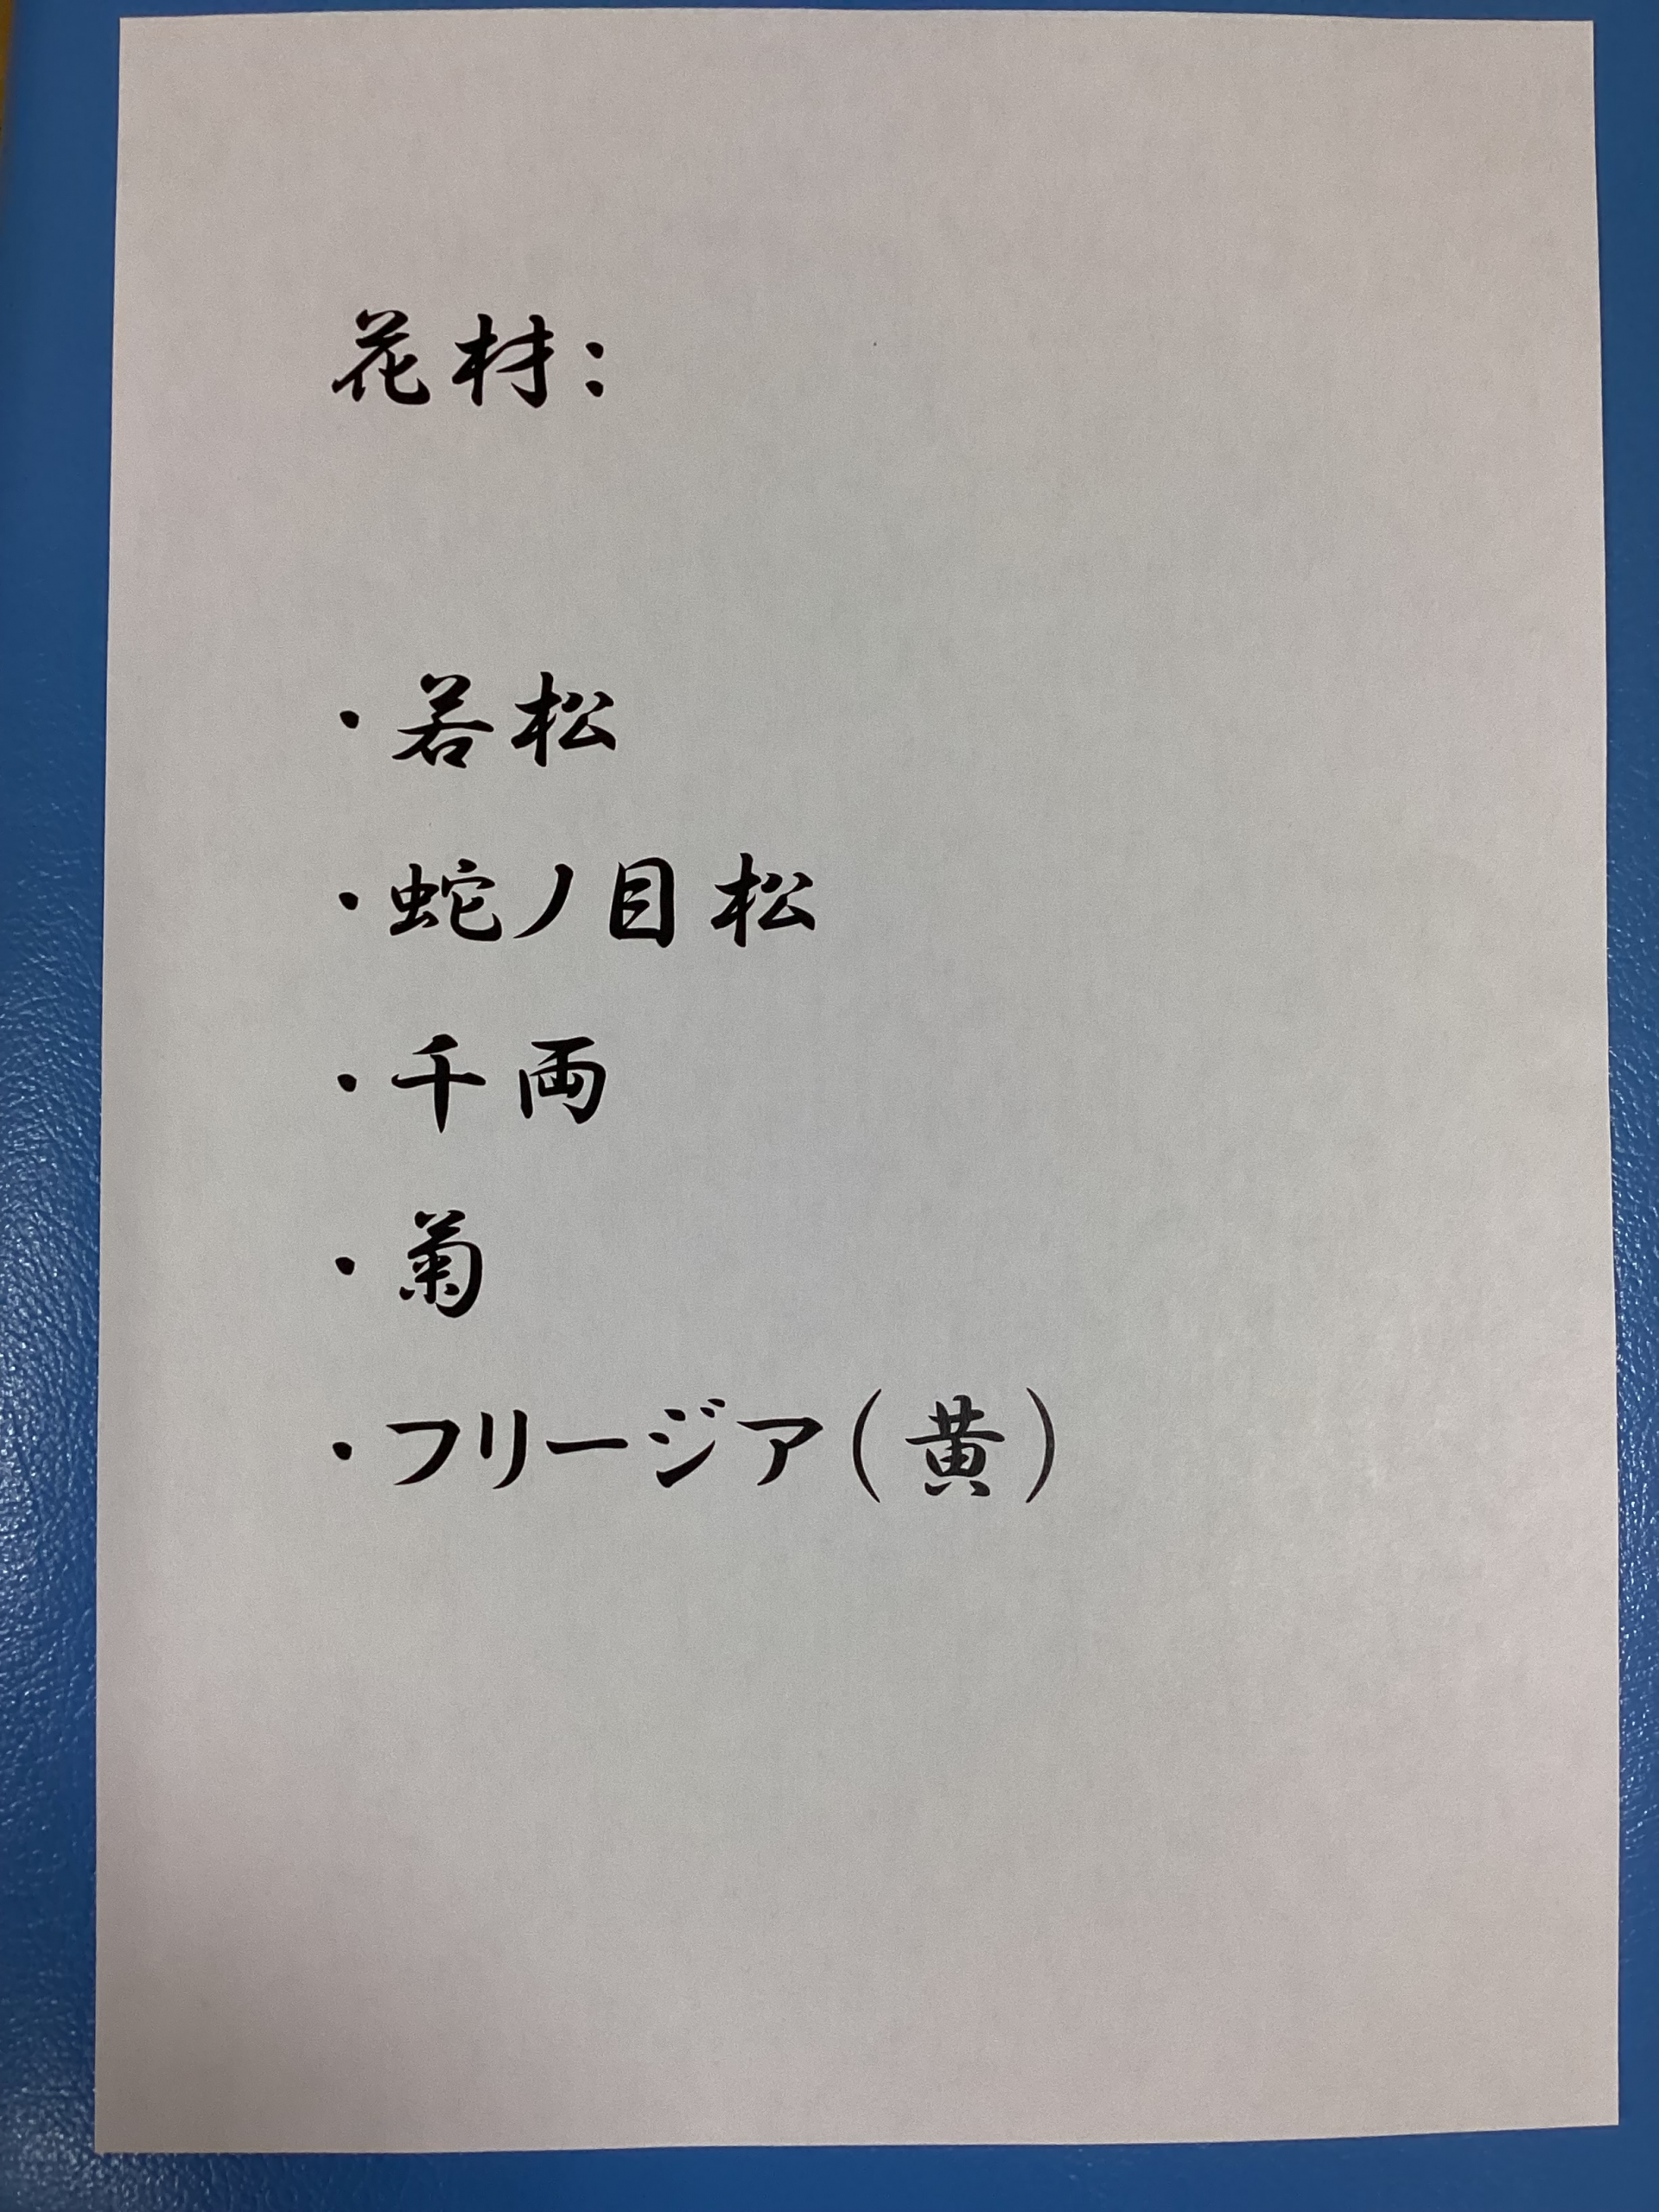 花材：
・若松
・蛇ノ目松
・千両
・菊
・フリージア（黄）